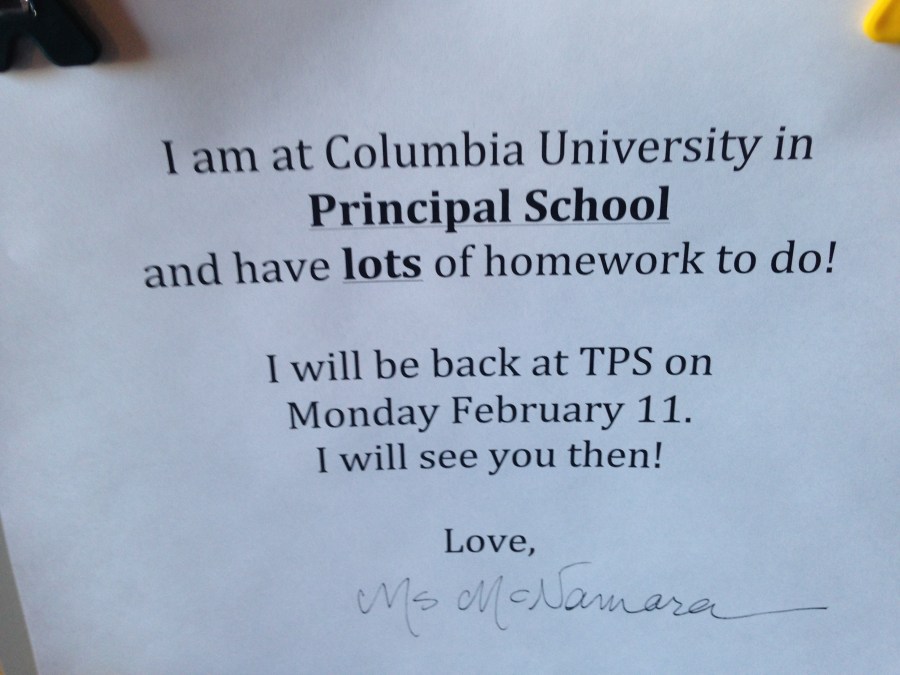 I am at Columbia University in
Principal School
and have lots of homework to do!
I will be back at TPS on
Monday February 11.
I will see you then!
Love,
Ms McNamara